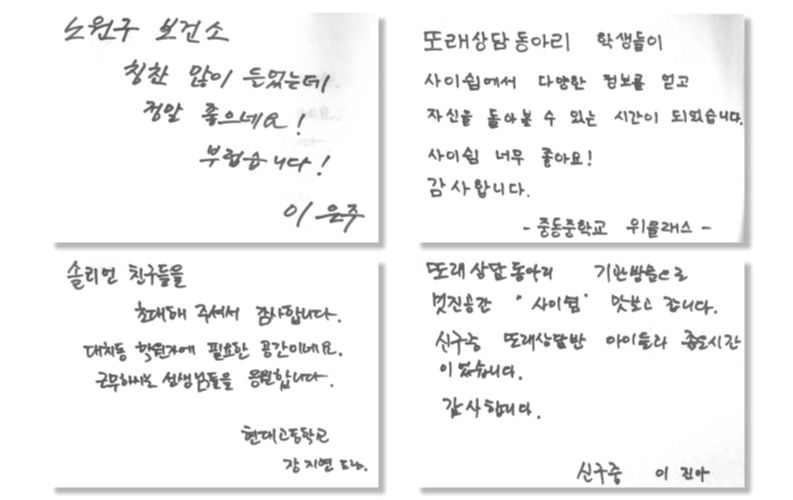 노원구 보건소
칭찬 많이 들었는데
정말 좋으네요!
부럽습니다!
이은주
또래상담동아리 학생들이
사이쉼에서 다양한 정보를 얻고
자신을 돌아볼 수 있는 시간이 되었습니다.
사이쉼 너무 좋아요!
감사합니다.
- 중동중학교 위클래스 -
솔리언 친구들을
초대해 주셔서 감사합니다.
대치동 학원가에 필요한 공간이네요.
근무하시는 선생님들을 응원합니다.
현대고등학교
강지연 드림.
또래상담동아리 기관방문으로
멋진공간 "사이쉼" 맛보고 갑니다.
신구중 또래상담반 아이들과 좋은시간
이었습니다.
감사합니다.
신구중 이진아